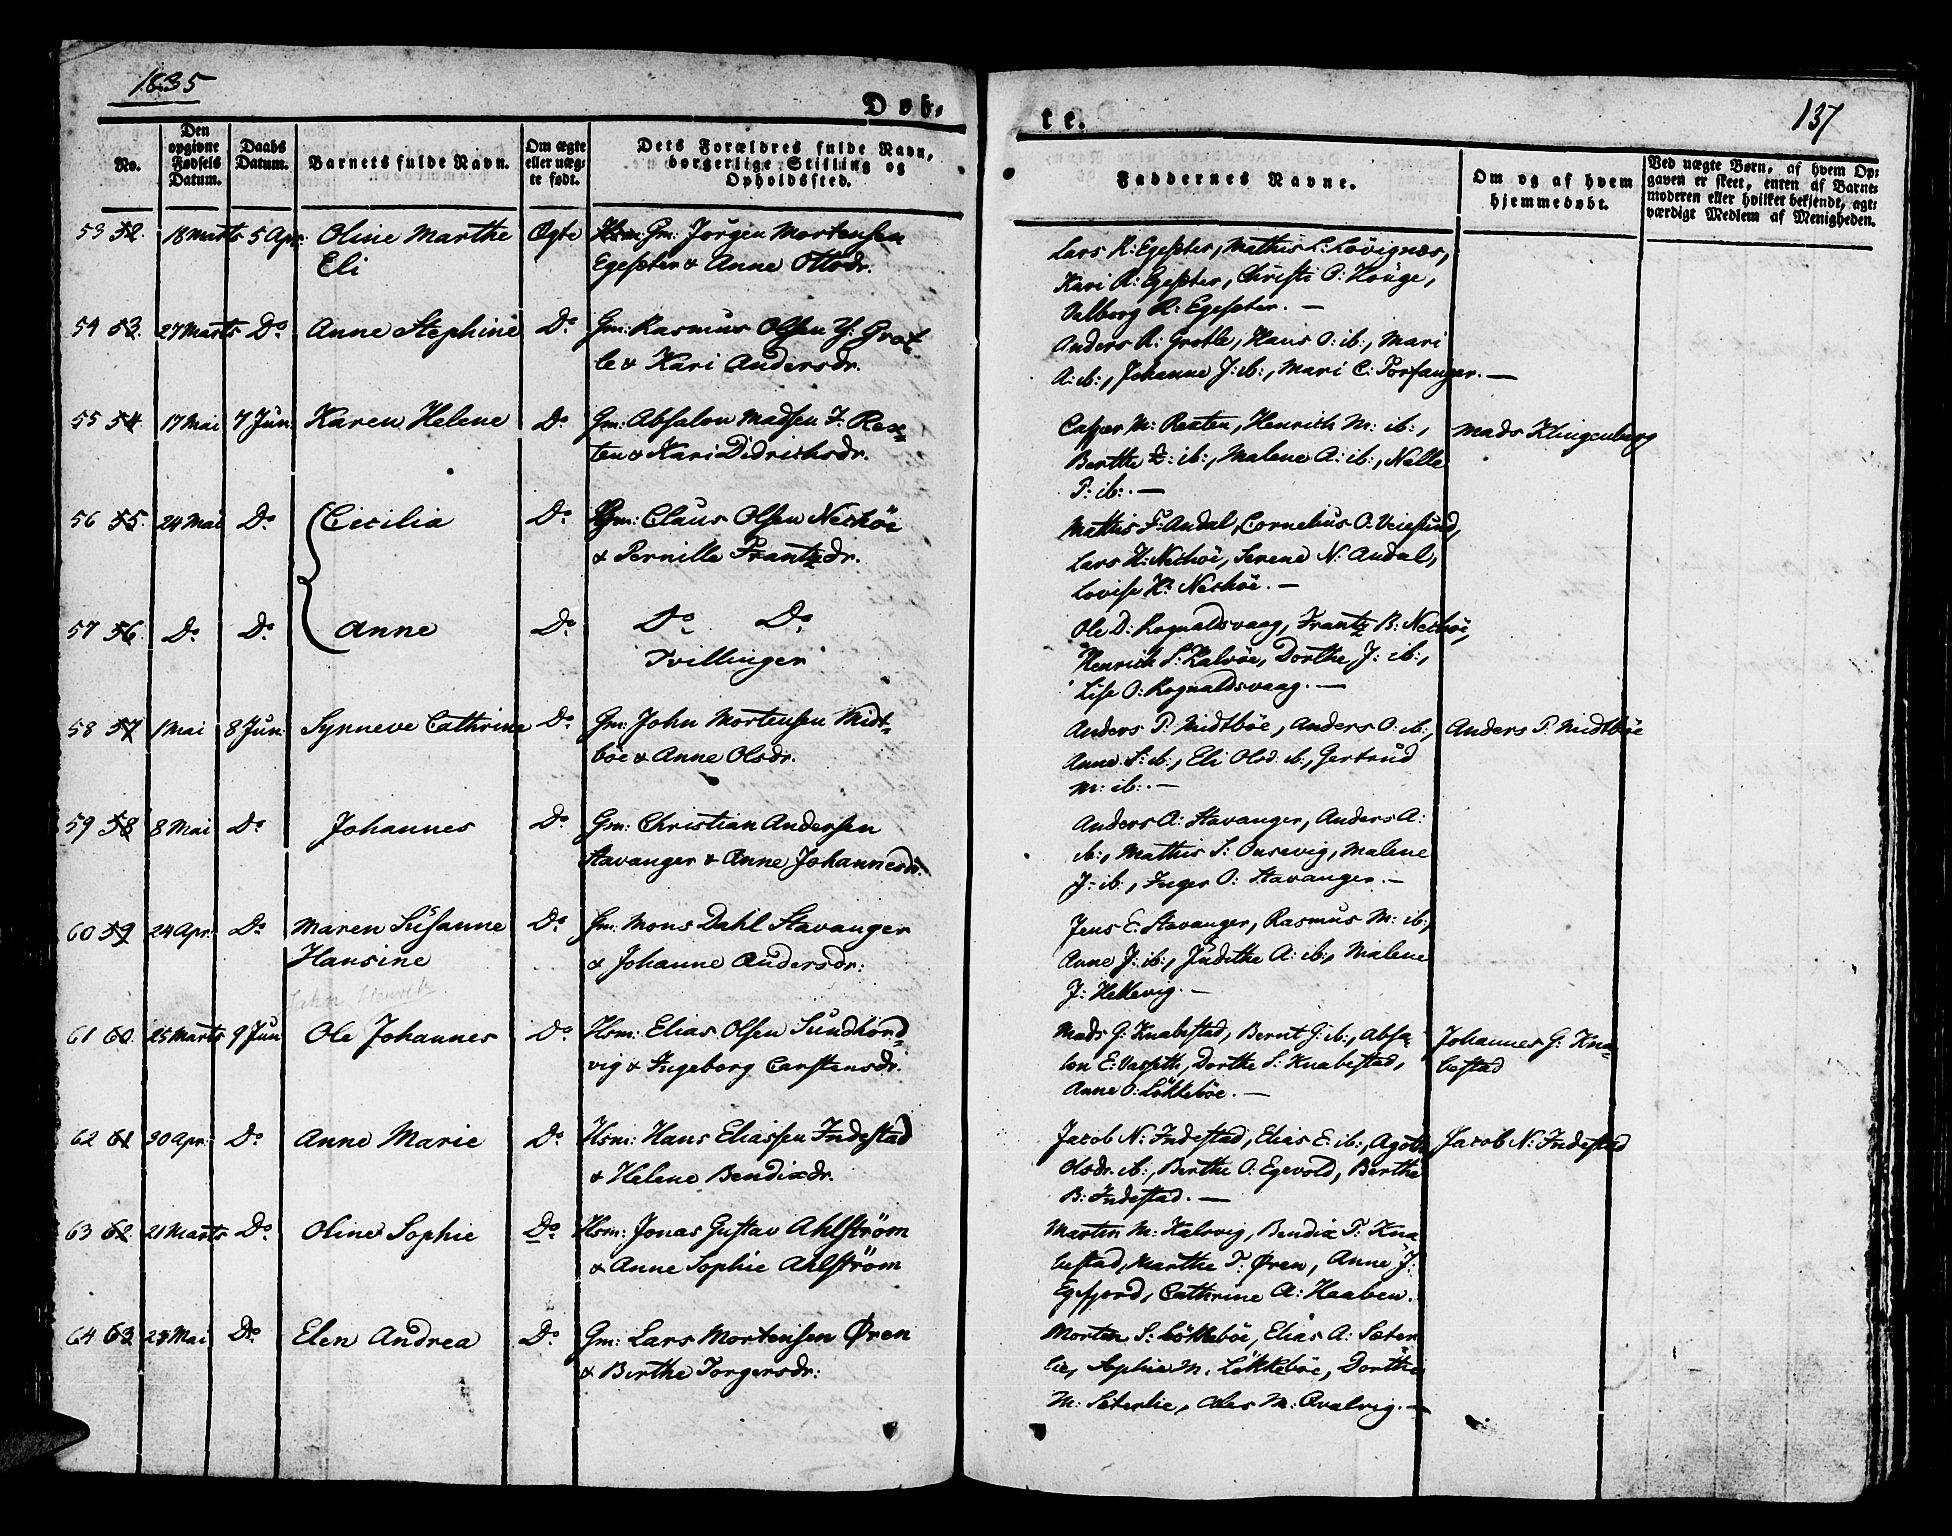 1835
Døb-
te.
137
No.
Den opgivne Fødsels Datum.
Daabs Datum.
Barnets fulde Navn.
Om ægte eller uæg-
te født.
Dets Forældres fulde Navn,
borgerlige Stilling og
Opholdssted.
Faddernes Navne.
Om og af hvem
hjemmedøbt.
Ved uægte Børn, af hvem Op-
gaven er skeet, enten af Barne-
moderen eller hvilket bekjendt, agt-
værdigt Medlem af Menigheden.
53 52. 18 Marts 5 Apr. Oline Marthe Ægte Gm: Jørgen Mortensen
Eli Egesæter & Anne Ottosdr.
Lars R: Egesæter, Mathis L: Løvignæs,
Kari R: Egesæter, Christi O: Houge,
Valborg R: Egesæter. —
54 53. 27 Marts Do Anne Stephine Do Gm: Rasmus Olsen Y: Grot-
le & Kari Andersdr.
Anders R: Grotle, Hans O: ib:, Mari
A: ib:, Johanne J: ib:, Mari C: Torfanger. —
55 54 17 Mai 7 Jun. Karen Helene Do Gm: Absalon Madsen I. Rex-
ten & Kari Didrichsdr.
Casper M: Rexten, Henrich M: ib:, Mads Klingenberg
Berthe D: ib:, Malene A: ib:, Nelle
P: ib:. —
56 55. 24 Mai Do Cicilia Do Gm: Claus Olsen Neshøe
& Pernille Frantzdr.
Mathis F: Andal, Cornelius O: Veiesund,
Lars H: Neshøe, Serene N: Andal,
Lovise H: Neshøe. —
57 56. Do Do Anne Do Do Do
Tvillinger
Ole D: Rognaldsvaag, Frantz B: Neshøe,
Henrich S: Kalvøe, Dorthe J: ib:,
Lise O: Rognaldsvaag. —
58 57 1 Mai 8 Jun. Synneve Cathrine Do Gm: John Mortensen Midt-
bøe & Anne Olsdr.
Anders P: Midtbøe, Anders O: ib:, Anders P: Midtbøe
Anne S: ib:, Eli Olsd: ib:, Gertrud
M: ib:. —
59 58 8 Mai Do Johannes Do Gm: Christian Andersen
Stavanger & Anne Johannesdr.
Anders A: Stavanger, Anders A:
ib:, Mathis S: Ousevig, Malene
J: ib:, Inger O: Stavanger. —
60 59 24 Apr. Do Maren Susanne Do Gm: Mons Dahl Stavanger
Hansine & Johanne Andersdr:
Jens E: Stavanger, Rasmus M: ib:,
Anne J: ib:, Judithe A: ib:, Malene
J: Hellevig. —
61 60. 25 Marts 9 Jun Ole Johannes Do Hsm: Elias Olsen Sundhord-
vig & Ingeborg Carstensdr.
Mads G: Knabestad, Bernt G: ib:, Absa- Johannes G: Kna-
lon E: Vasseth, Dorthe S: Knabestad, bestad
Anne O: Løkkebøe. —
62 61 30 Apr: Do Anne Marie Do Hsm: Hans Eliassen Indestad
& Helene Bendixdr.
Jacob N: Indestad, Elias E: ib:, Agote Jacob N: Indestad
Olsdr: ib:, Berthe O: Egevold, Berthe
B: Indestad. —
63 62. 21 Marts Do Oline Sophie Do Hsm: Jonas Gustav Ahlström
& Anne Sophie Ahlström
Morten M: Kalvvig, Bendix T: Kna
bestad, Marthe T: Øren, Anne J:
Egefjord, Cathrine A: Haaben.
64 63 23 Mai Do Elen Andrea Do Gm: Lars Mortensen Øren
& Birthe Torgersdr:
Morten S: Løkkebøe, Elias A: Sæter
lie, Sophie M: Løkkebøe, Dorthe
M: Seterlie, Ales M: Qvalvig. —